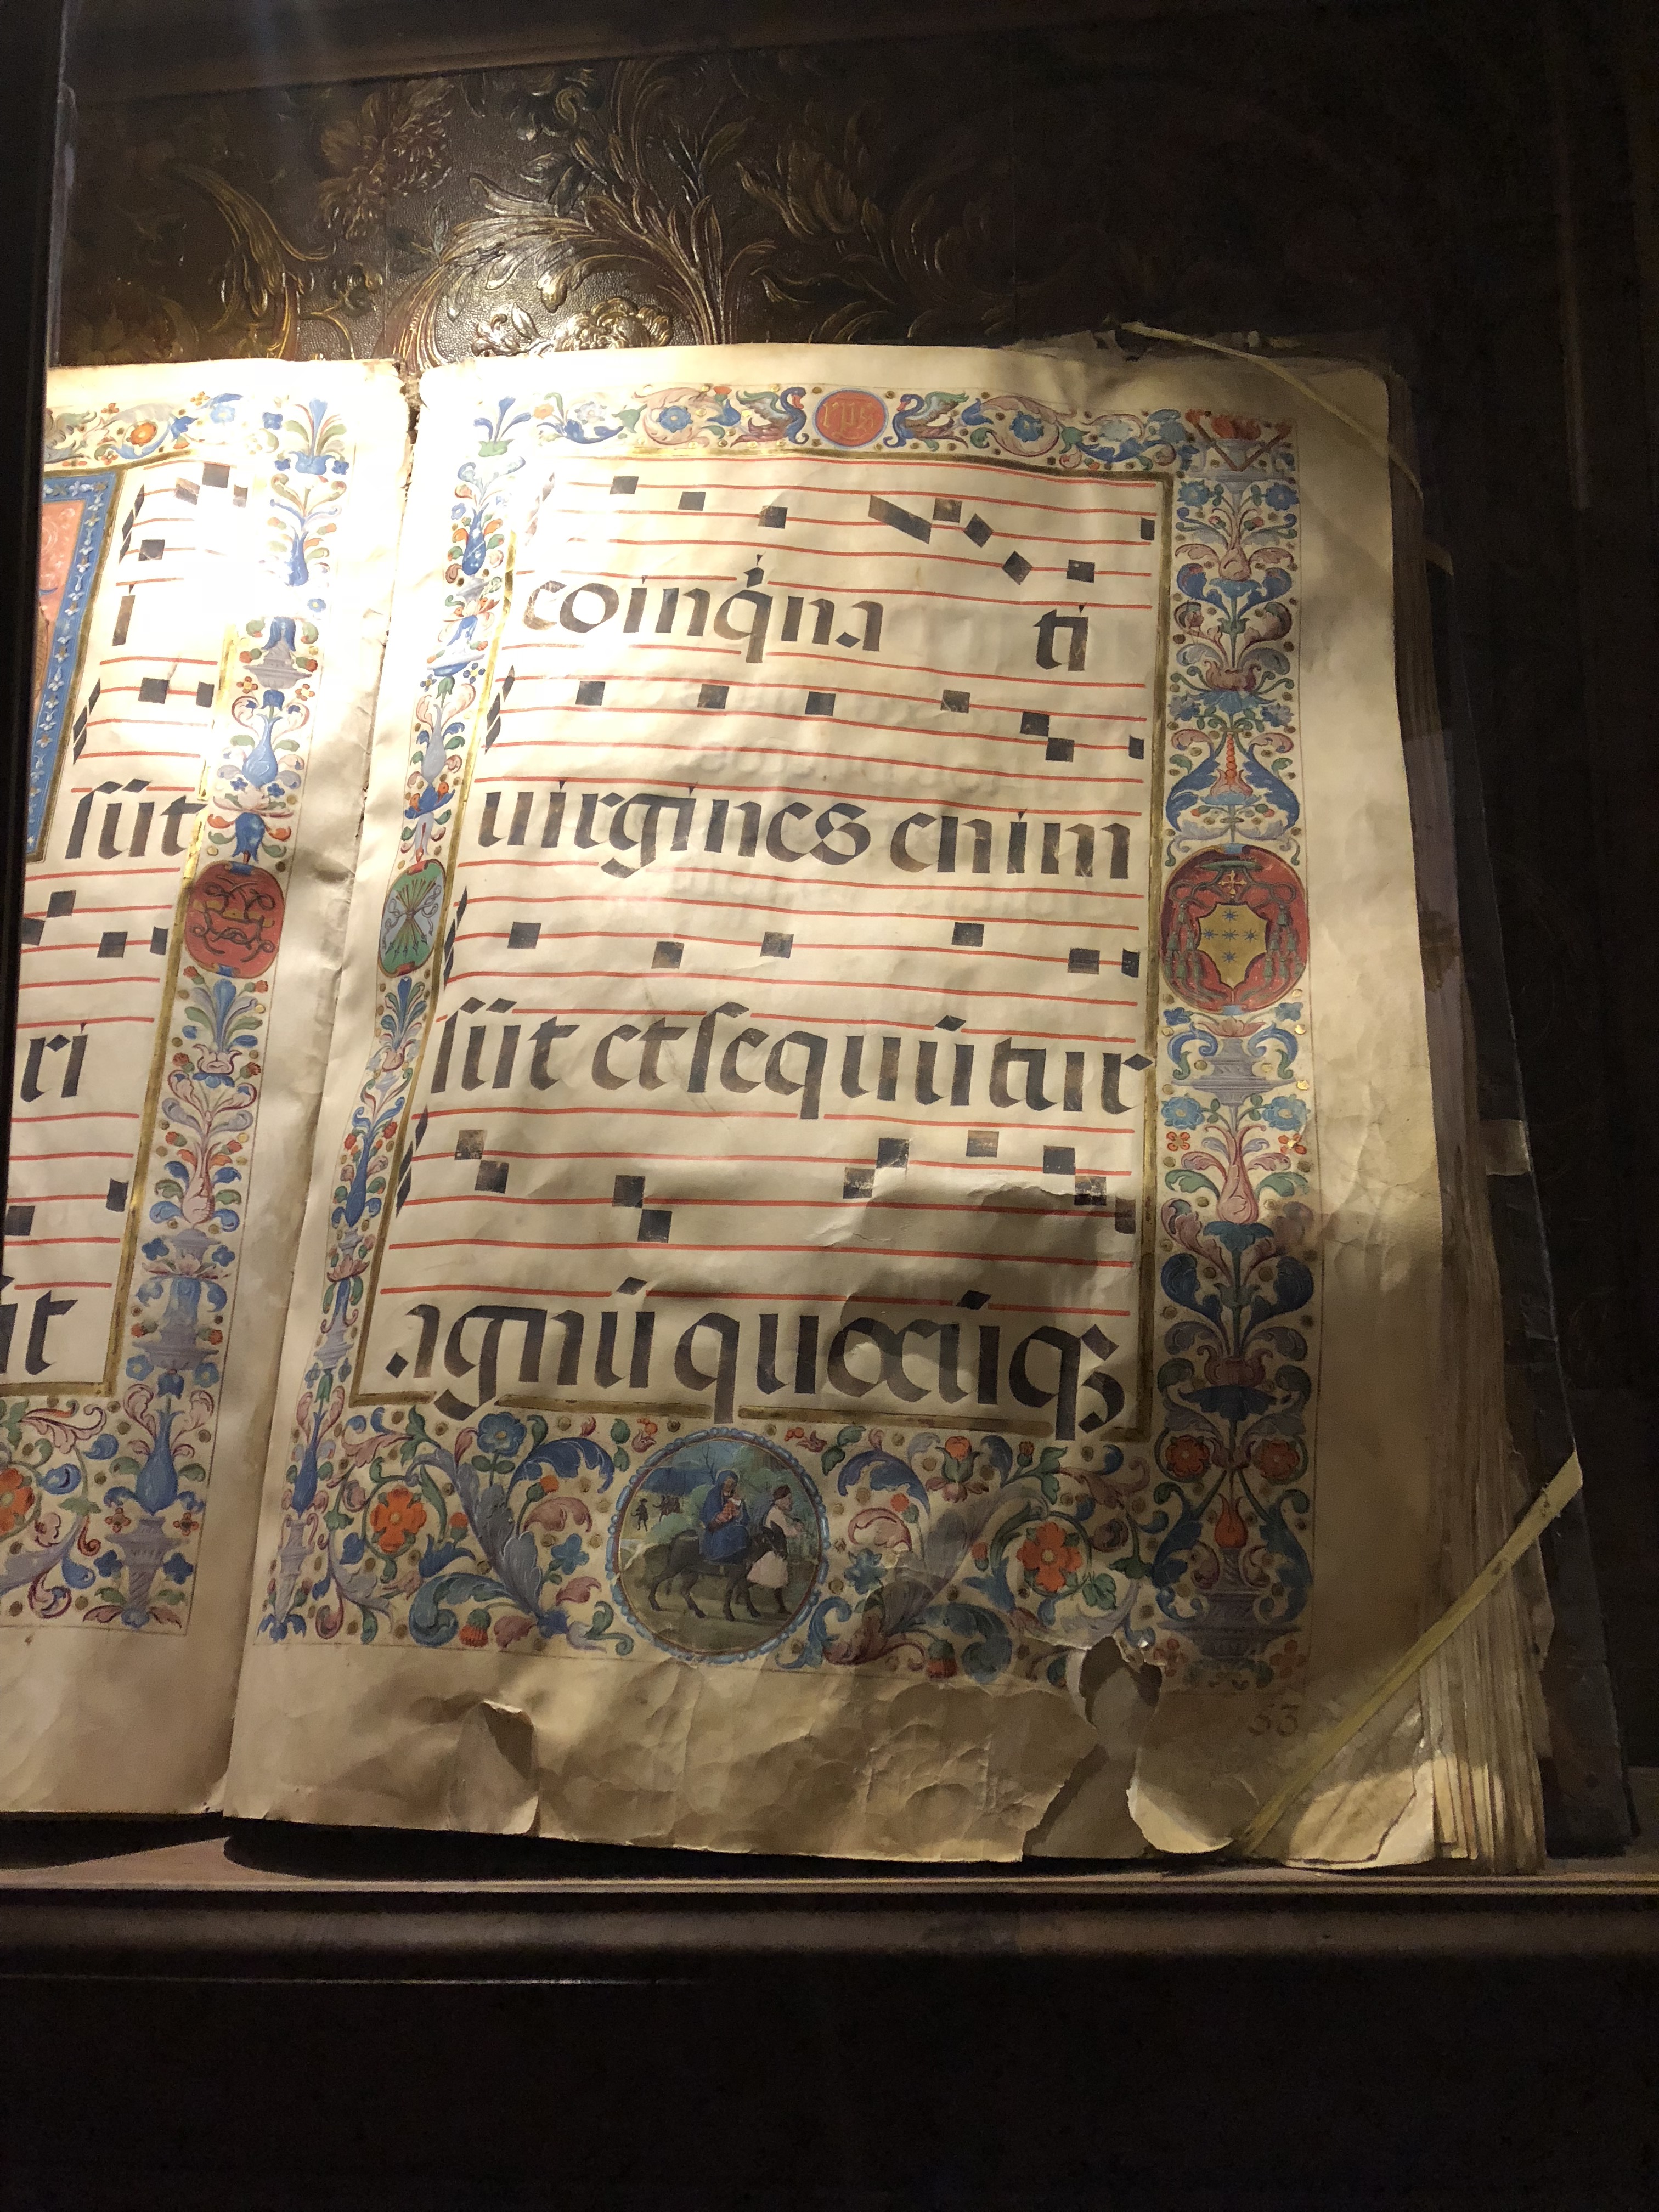 i
ſūt
ri
coinq̇na ti
uirgines enim
ſūt et ſequūtur
agnū quocūqꝫ
53